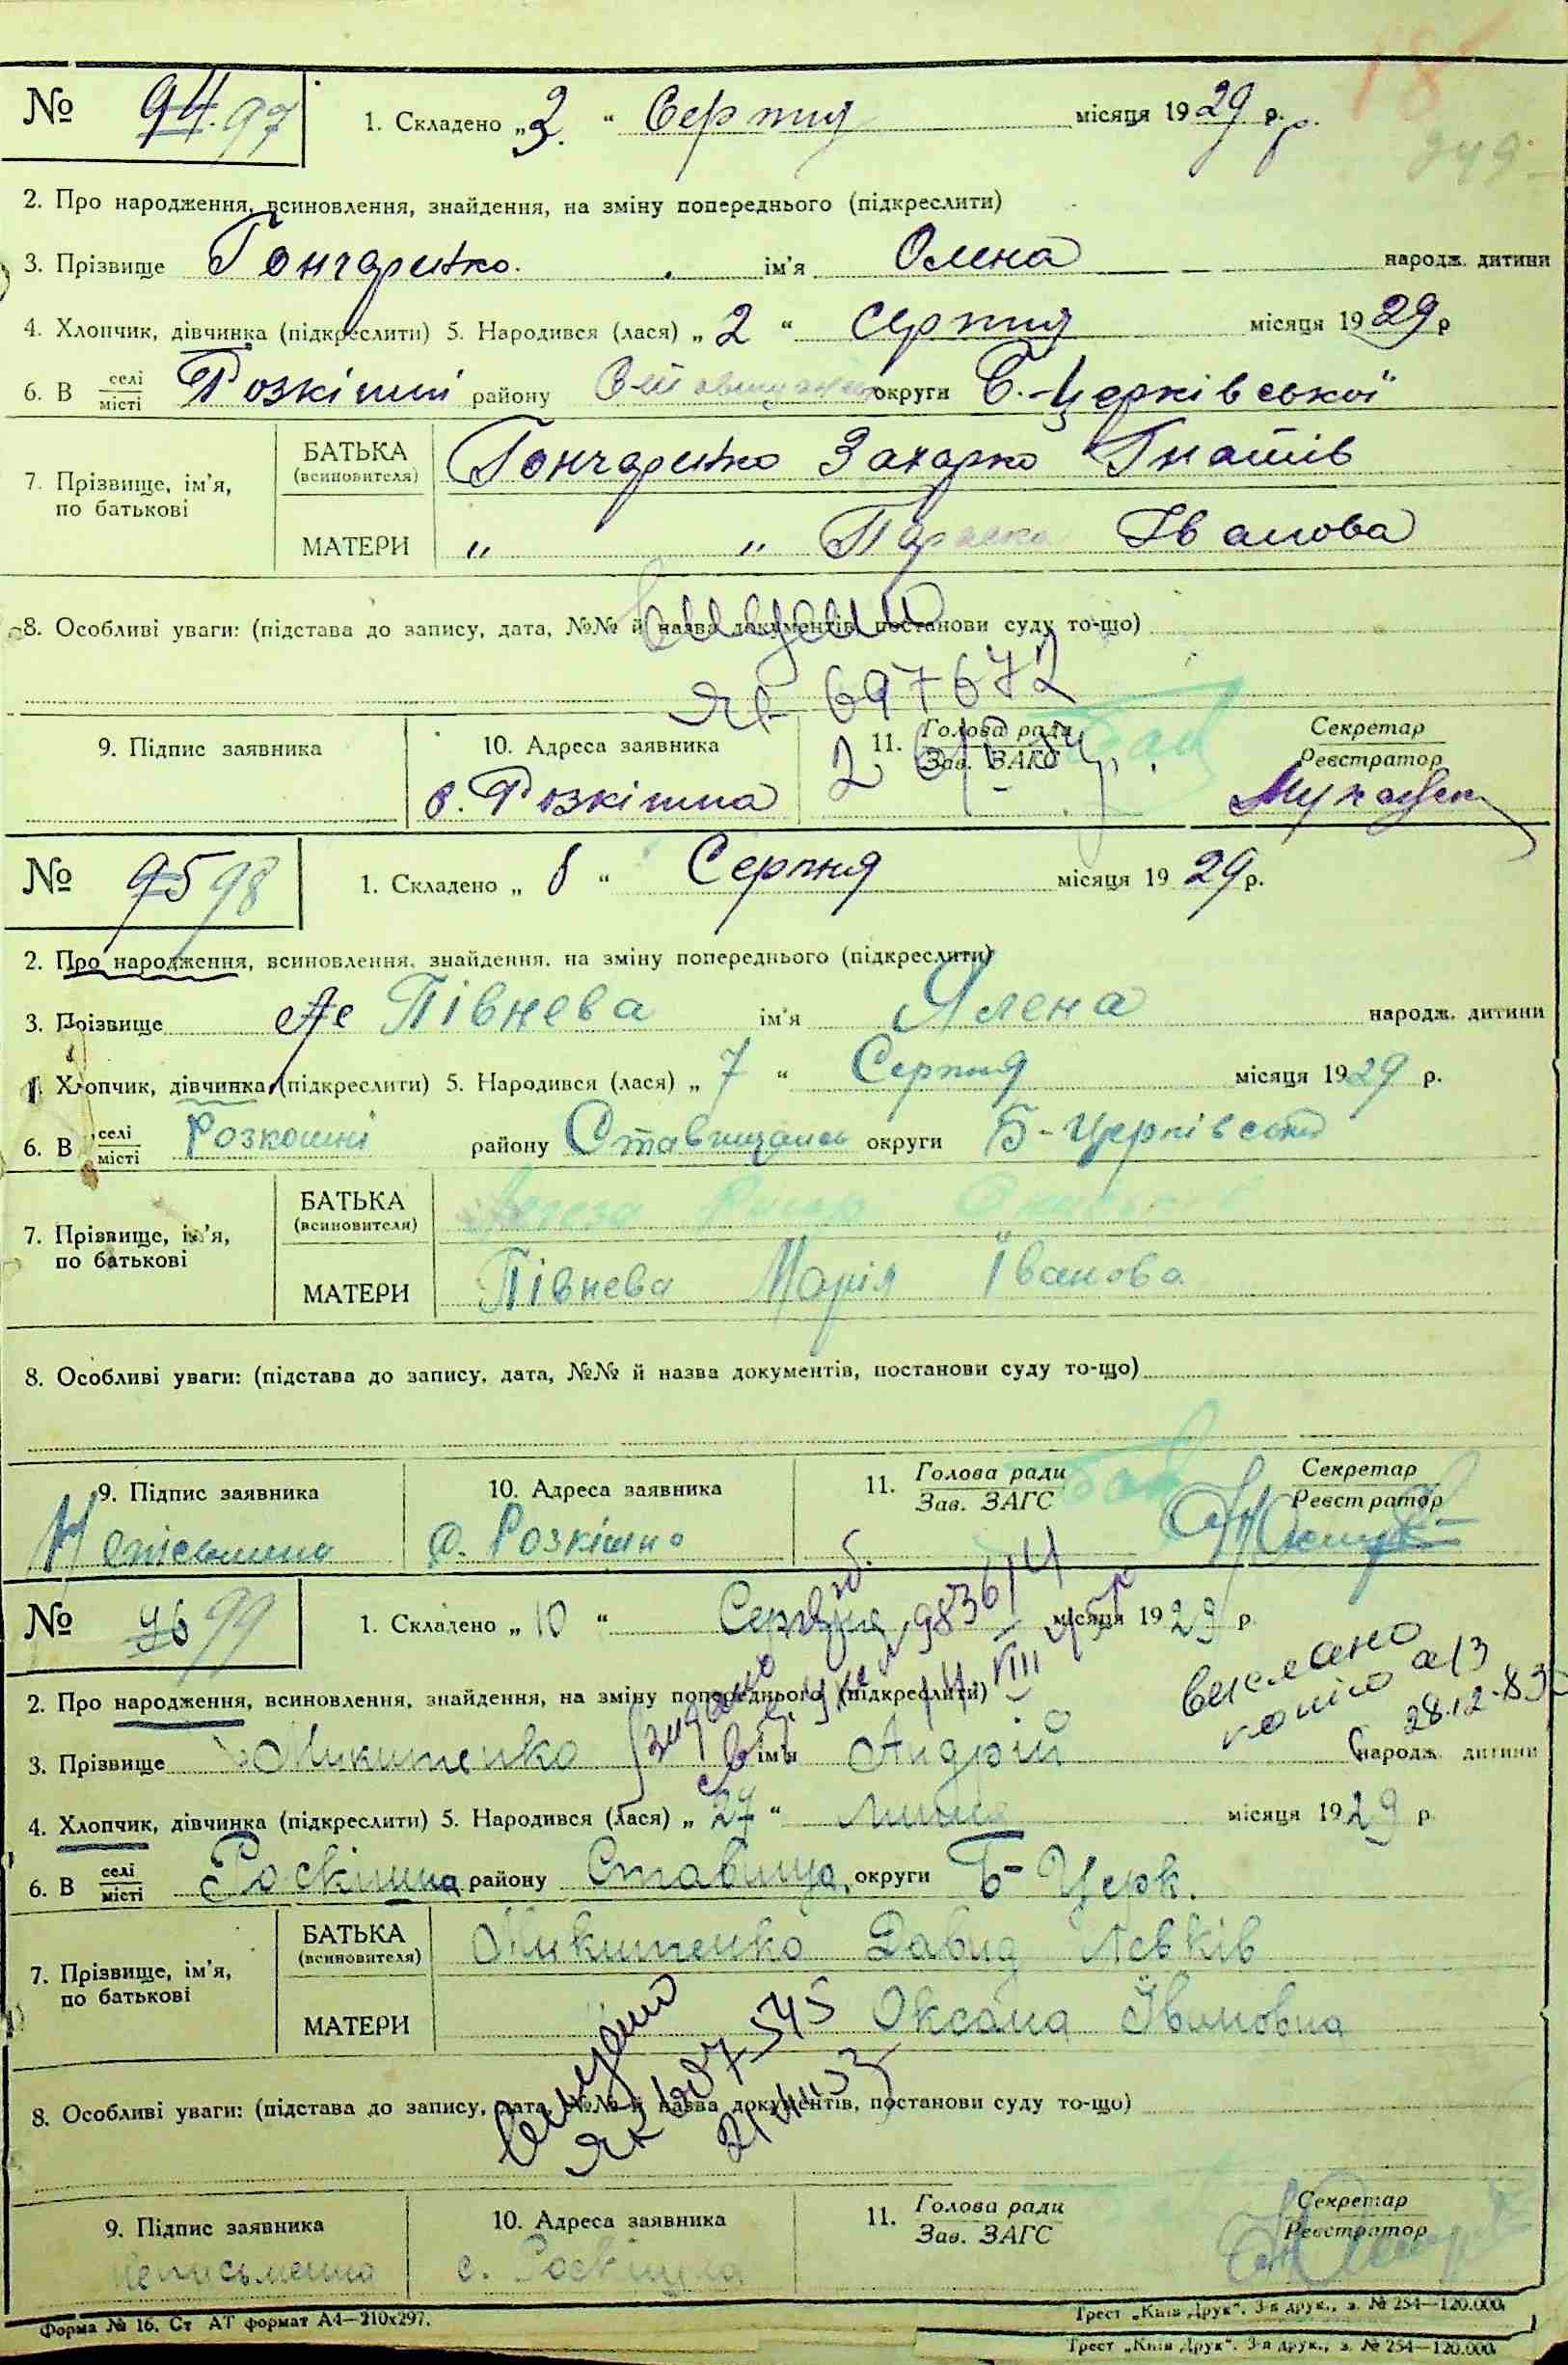 185
249
№ 94. 97
1. Складено „3. “ Серпня місяця 1929 р.
2. Про народження, всиновлення, знайдення, на зміну попереднього (підкреслити)
3. Прізвище Гончаренко. ім'я Олена народж. дитини
4. Хлопчик, дівчинка (підкреслити) 5. Народився (лася) „ 2 “ серпня місяця 1929 р
6. В селі/місті Розкішні району округи Б.-Церківської
7. Прізвище, ім'я, по батькові
БАТЬКА (всиновителя) Гончаренко Захарко Гнатів
МАТЕРИ „ „ Параска Іванова
8. Особливі уваги: (підстава до запису, дата, №№ й назва документів, постанови суду то-що)
697672
9. Підпис заявника
10. Адреса заявника
с. Розкішна
11. Голова ради
Зав. ЗАГС
Секретар
Реєстратор
№ 95 98
1. Складено „ 8 “ Серпня місяця 1929 р.
2. Про народження, всиновлення, знайдення, на зміну попереднього (підкреслити)
3. Прізвище Півнева ім'я Ялена народж. дитини
4. Хлопчик, дівчинка (підкреслити) 5. Народився (лася) „ 7 “ Серпня місяця 1929 р.
6. В селі/місті Розкошні району Ставищансь округи Б-Церківської
7. Прізвище, ім'я, по батькові
БАТЬКА (всиновителя)
МАТЕРИ Півнева Марія Іванова
8. Особливі уваги: (підстава до запису, дата, №№ й назва документів, постанови суду то-що)
9. Підпис заявника
Неписьмена
10. Адреса заявника
с. Розкішна
11. Голова ради
Зав. ЗАГС
Секретар
Реєстратор
№ 96 99
1. Складено „ 10 “ Серпня місяця 1929 р.
2. Про народження, всиновлення, знайдення, на зміну попереднього (підкреслити)
28.12.83
3. Прізвище Микитенко ім'я Андрій народж. дитини
4. Хлопчик, дівчинка (підкреслити) 5. Народився (лася) „ 27 “ липня місяця 1929 р.
6. В селі/місті Роскішна району Ставища, округи Б-Церк.
7. Прізвище, ім'я, по батькові
БАТЬКА (всиновителя) Микитенко Давид Левків
МАТЕРИ Оксана Івановна
8. Особливі уваги: (підстава до запису, дата, №№ й назва документів, постанови суду то-що)
9. Підпис заявника
неписьменна
10. Адреса заявника
с. Роскішна
11. Голова ради
Зав. ЗАГС
Секретар
Реєстратор
Форма № 16. Ст АТ формат А4—210х297.
Трест „Київ Друк“. 3-я друк., з. № 254—120.000.
Трест „Київ Друк“. 3-я друк., з. № 254—120.000.